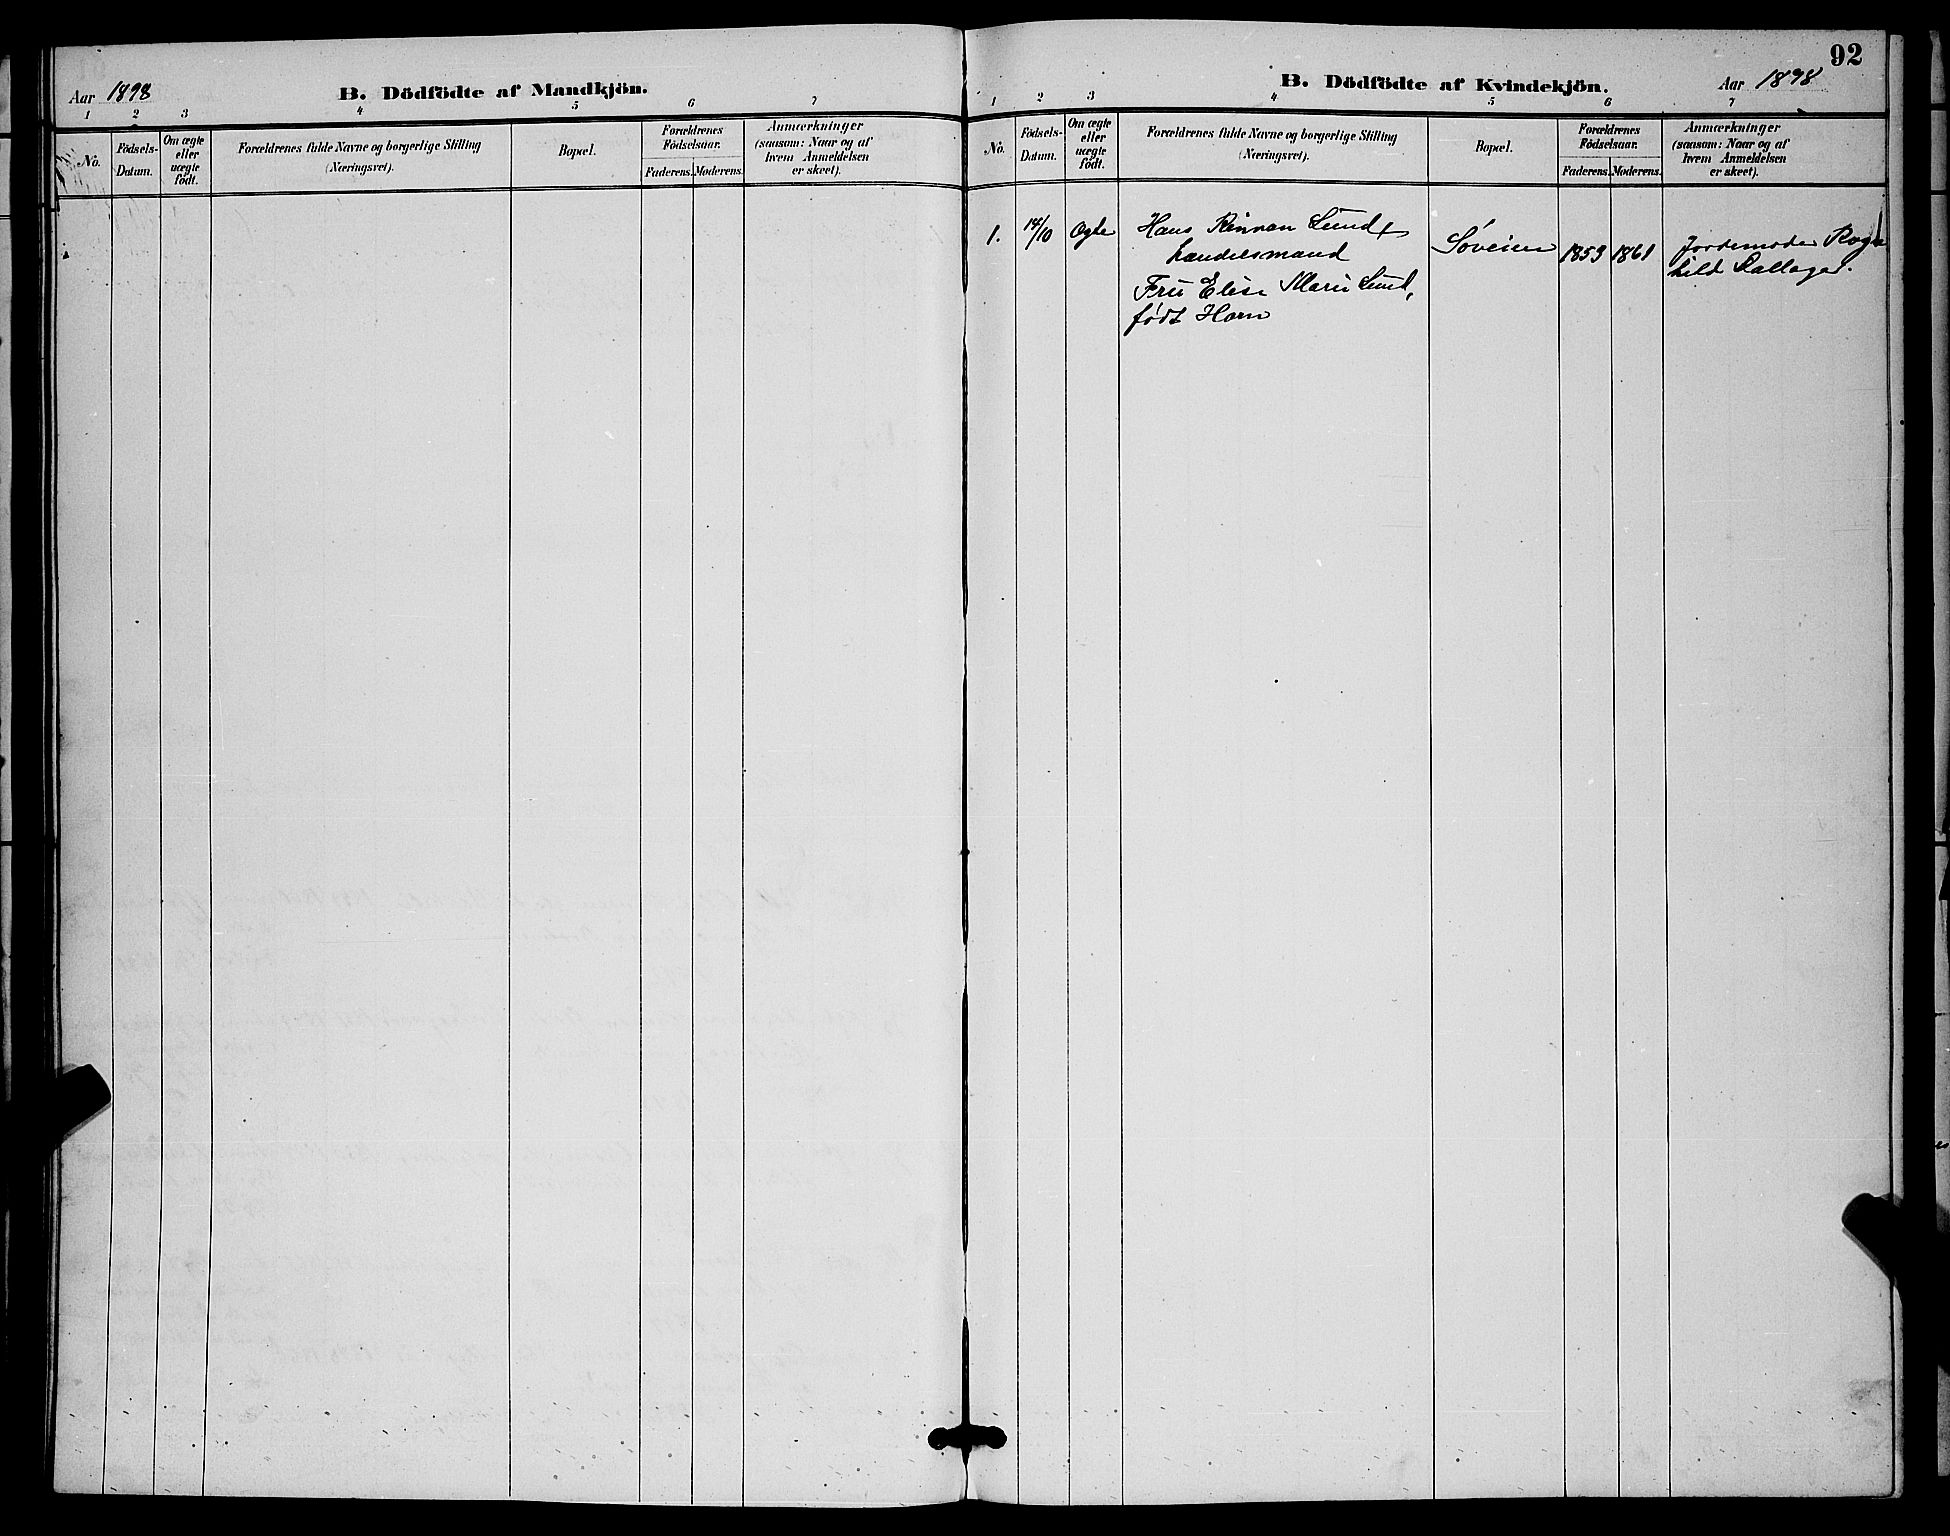 Aar 1898
B. Dödfödte af Mandkjön.
1 2 3 4 5 6 7
No.
Födsels-
Datum.
Om ægte
eller
uægte
födt.
Forældrenes fulde Navne og borgerlige Stilling
(Næringsret).
Bopæl.
Forældrenes
Födselsaar.
Faderens. Moderens.
Anmærkninger
(saasom: Naar og af
hvem Anmeldelsen
er skeet).
92
B. Dödfödte af Kvindekjön.
Aar 1898
1 2 3 4 5 6 7
No.
Födsels-
Datum.
Om ægte
eller
uægte
födt.
Forældrenes fulde Navne og borgerlige Stilling
(Næringsret).
Bopæl.
Forældrenes
Födselsaar.
Faderens. Moderens.
Anmærkninger
(saasom: Naar og af
hvem Anmeldelsen
er skeet).
1.
14/10
Ægte
Hans Rinnan Lund,
handelsmand
Fru Elise Marie Lund,
født Horn
Søveien
1853 1861
Jordemoder Rogn
hild